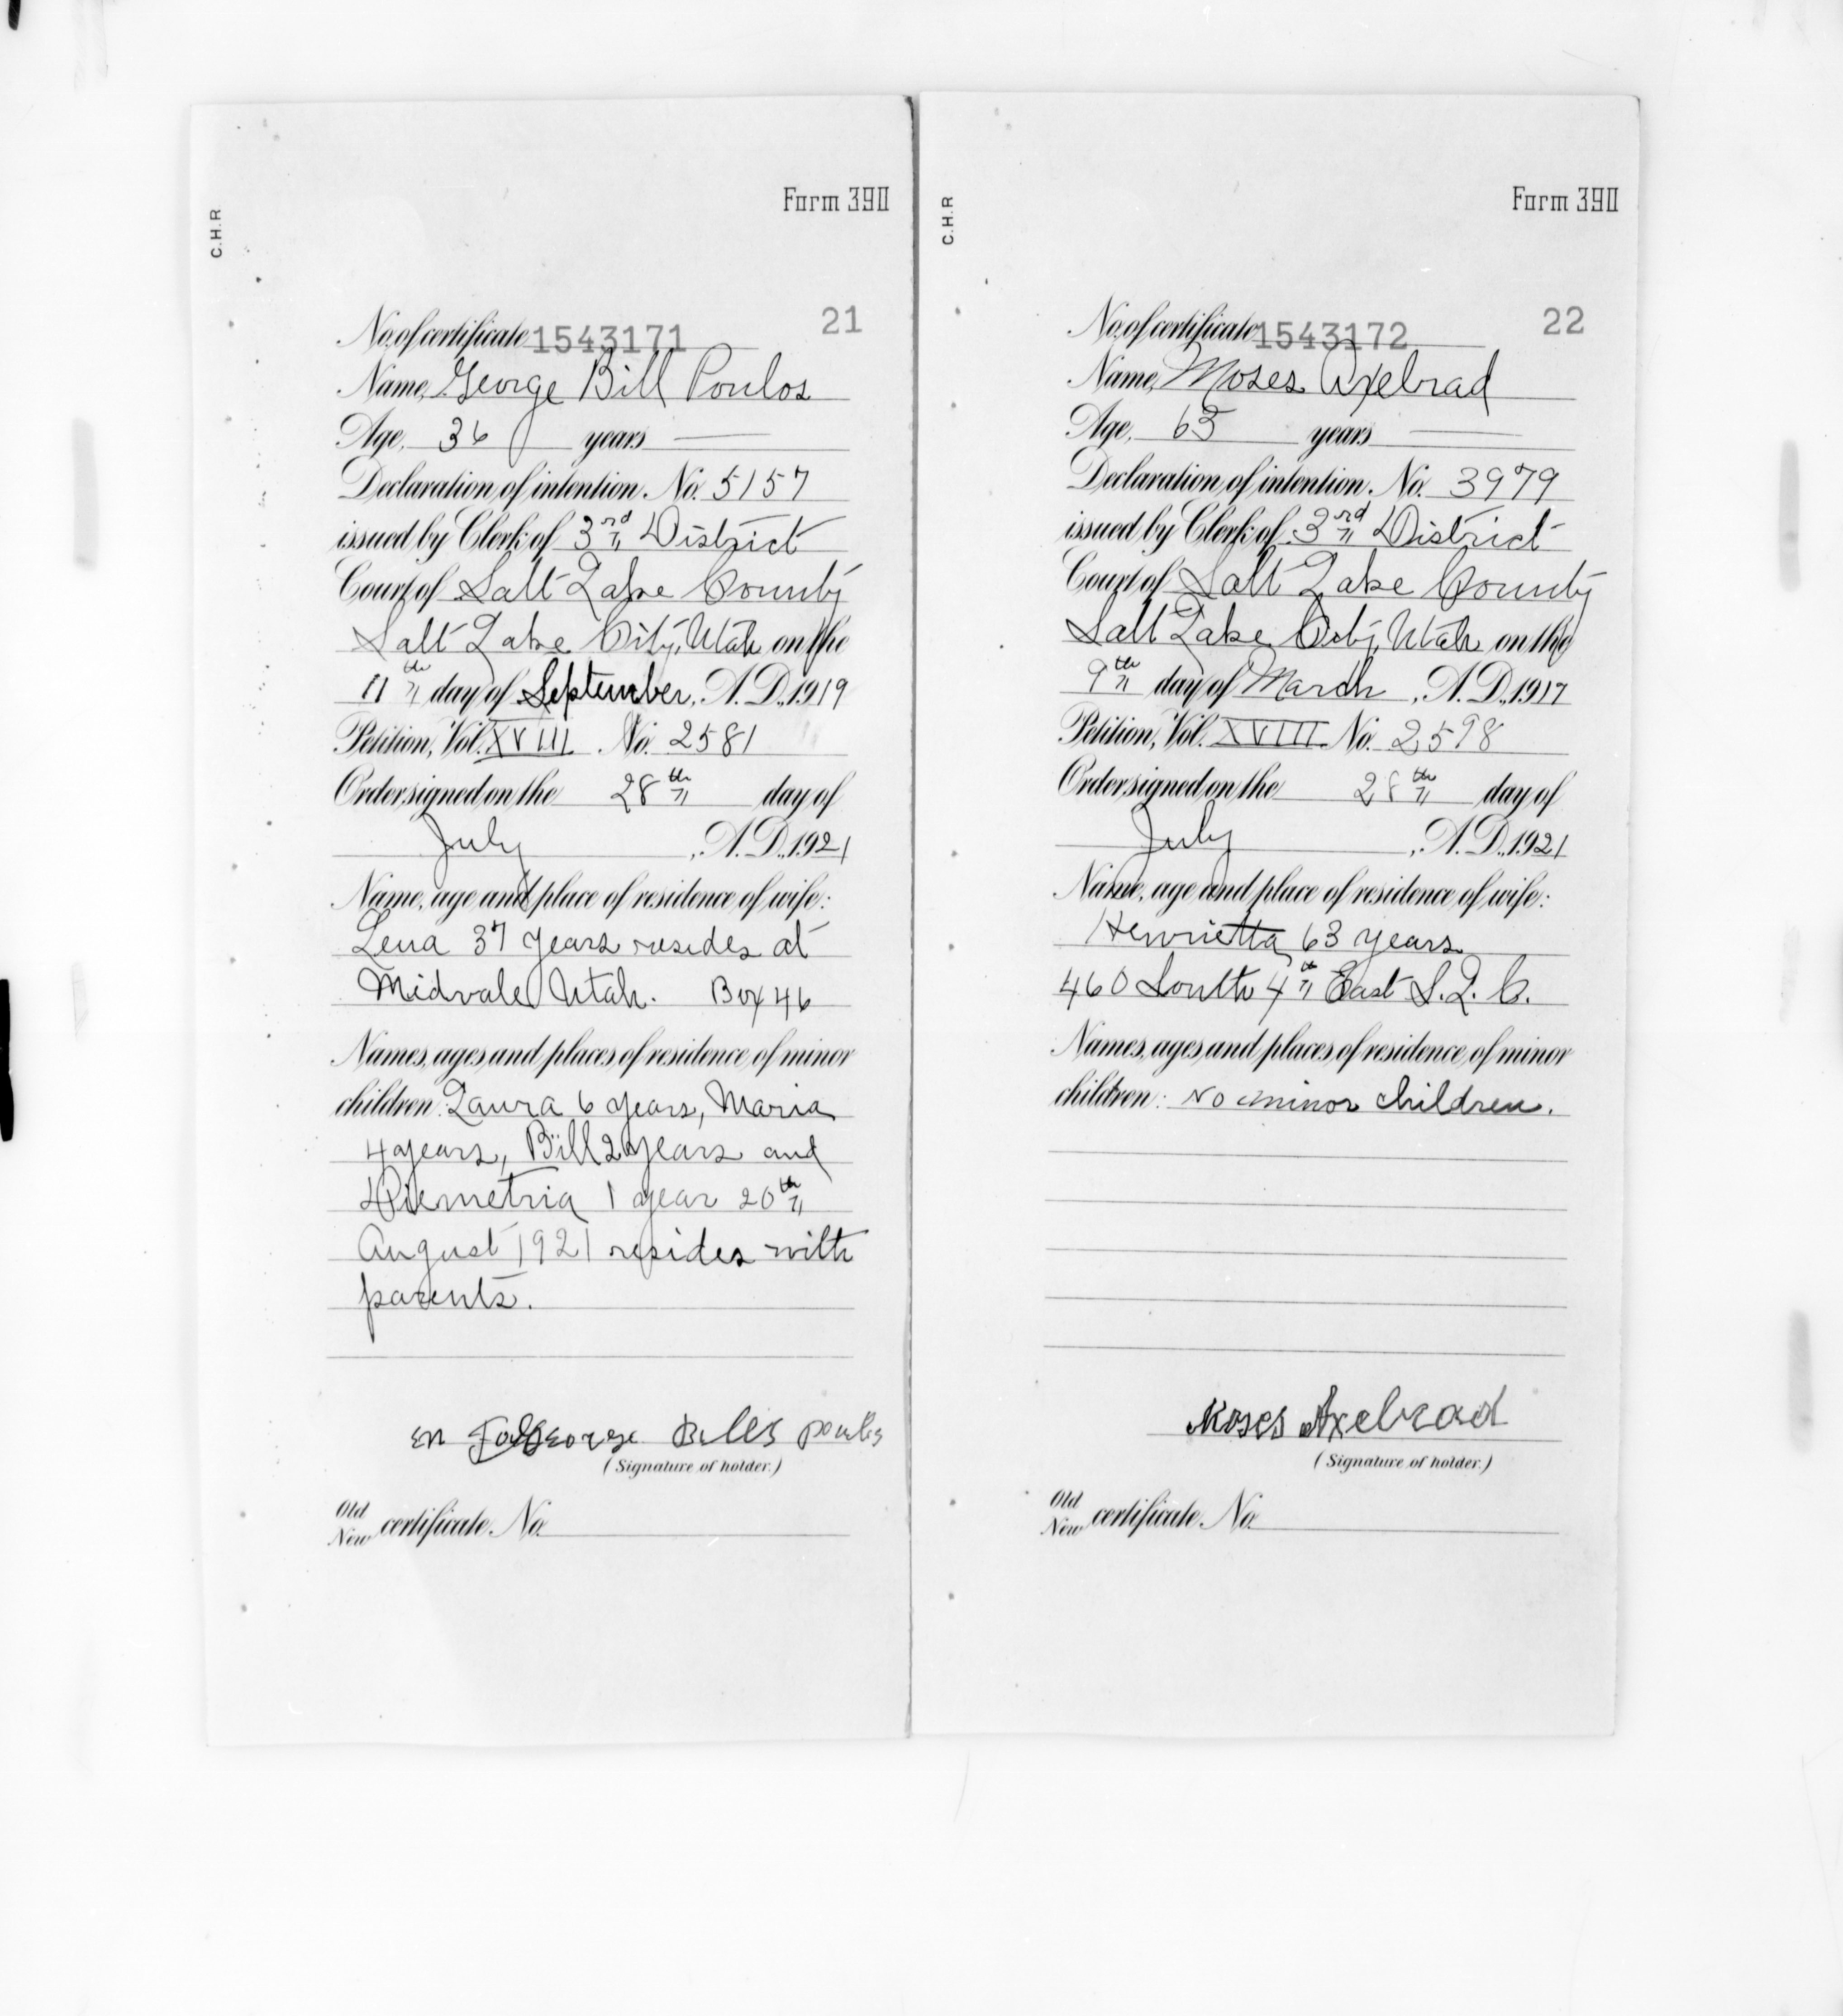 C.H.R
Form 390
21
No. of certificate 1543171
Name, George Bill Poulos
Age, 36 years
Declaration of intention, No. 5157
issued by Clerk of 3rd District
Court of Salt Lake County
Salt Lake City, Utah on the
11th day of September, A.D., 1919
Petition, Vol. XVIII No. 2581
Order signed on the 28th day of
July, A.D., 1921
Name, age and place of residence of wife:
Lena 37 years resides at
Midvale Utah. Box 46
Names, ages and places of residence of minor
children: Laura 6 years, Maria
4 years, Bill 2 years and
Diemetria 1 year 20th
August 1921 resides with
parents.
George Poulis
(Signature of holder.)
Old
New certificate No.
C.H.R
Form 390
22
No. of certificate 1543172
Name, Moses Axelrad
Age, 63 years
Declaration of intention, No. 3979
issued by Clerk of 3rd District
Court of Salt Lake County
Salt Lake City, Utah on the
9th day of March, A.D., 1917
Petition, Vol. XVIII No. 2598
Order signed on the 28th day of
July, A.D., 1921
Name, age and place of residence of wife:
Henrietta 63 years
460 South 4th East S.L.C.
Names, ages and places of residence of minor
children: No minor children.
Moses Axelrad
(Signature of holder.)
Old
New certificate No.